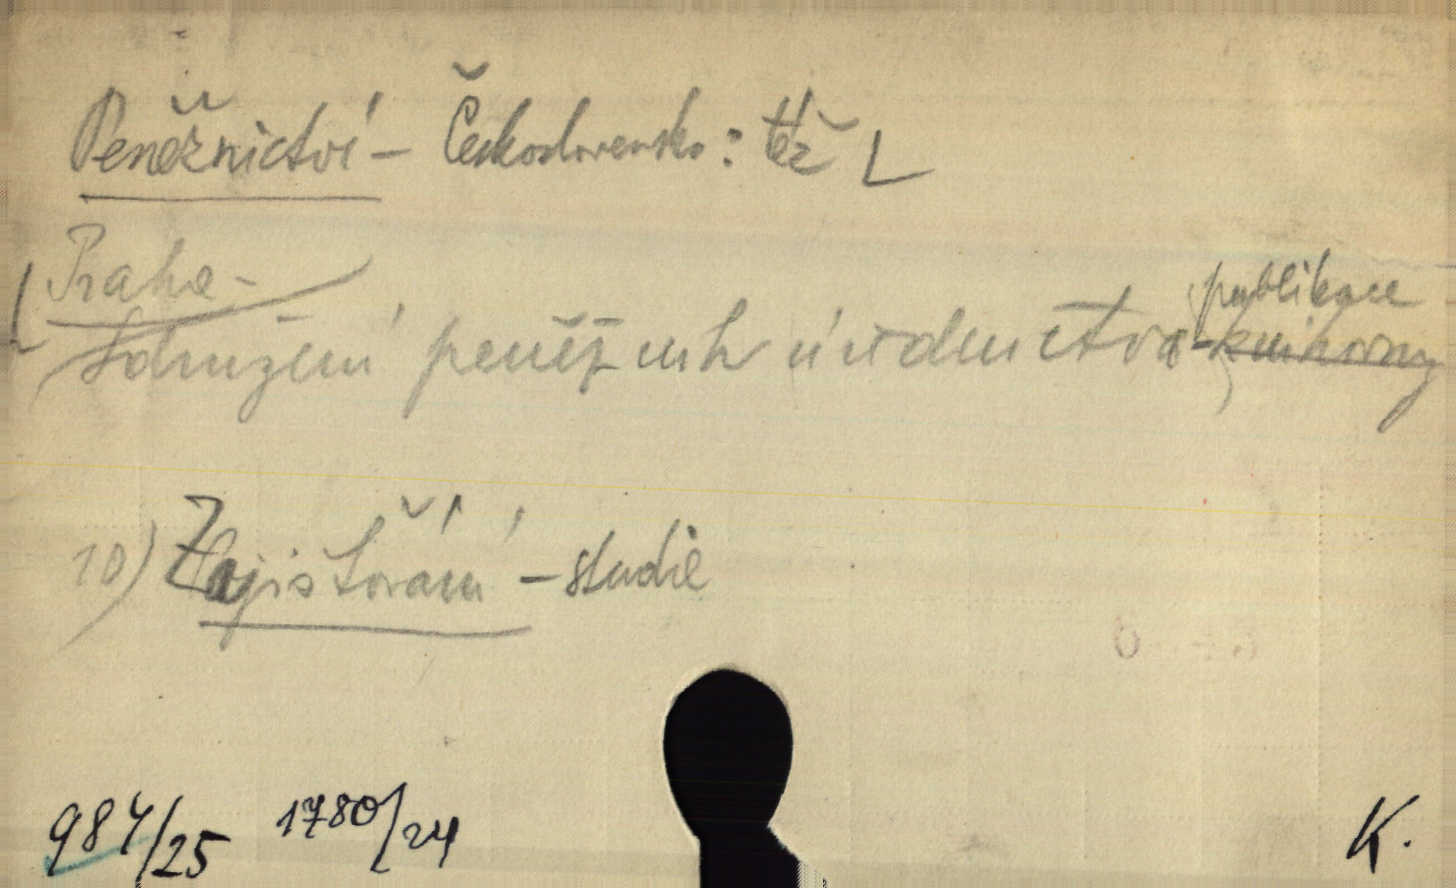 Peněžnictví - Československo: též L
Praha -
publikace
Sdružení peněžních úřednictva - knihovny
10) Zajišťování - studie
984/25 1780/24
K.